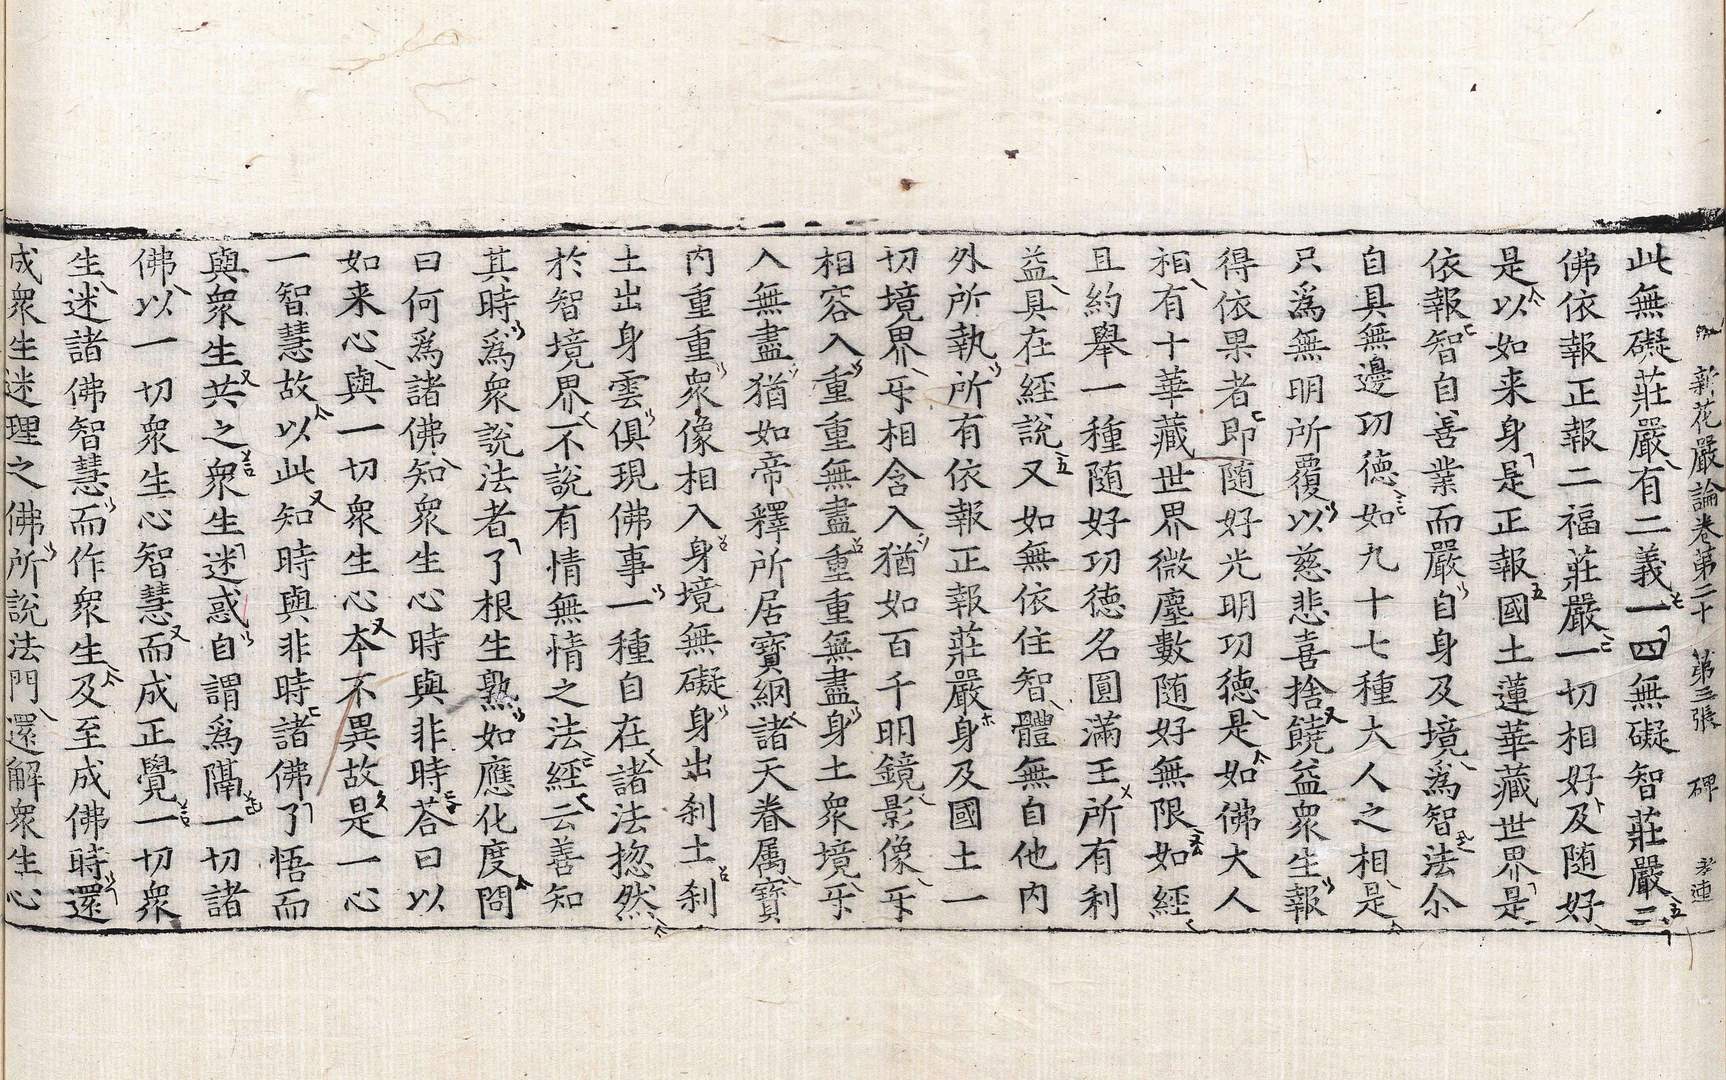 新花嚴論卷第二十 第三張 碑
此無礙莊嚴有二義一四無礙智莊嚴二
佛依報正報二福莊嚴一切相好及随好
是以如来身是正報國土蓮華藏世界是
依報智自善業而嚴自身及境爲智法尒
自具無邊功徳如九十七種大人之相是
只爲無明所覆以慈悲喜捨饒益衆生報
得依果者即随好光明功徳是如佛大人
相有十華藏世界微塵數随好無限如經
且約舉一種随好功徳名圓滿王所有利
益具在經說又如無依住智體無自他内
外所執所有依報正報莊嚴身及國土一
切境界㸦相含入猶如百千明鏡影像㸦
相容入重重無盡重重無盡身土衆境㸦
入無盡猶如帝釋所居寳網諸天眷属寳
内重重衆像相入身境無礙身出刹土刹
土出身雲俱現佛事一種自在諸法揔然
於智境界不說有情無情之法經云善知
其時爲衆說法者了根生熟如應化度問
曰何爲諸佛知衆生心時與非時荅曰以
如来心與一切衆生心夲不異故是一心
一智慧故以此知時與非時諸佛了悟而
與衆生共之衆生迷惑自謂爲隔一切諸
佛以一切衆生心智慧而成正覺一切衆
生迷諸佛智慧而作衆生及至成佛時還
成衆生迷理之佛所說法門還解衆生心